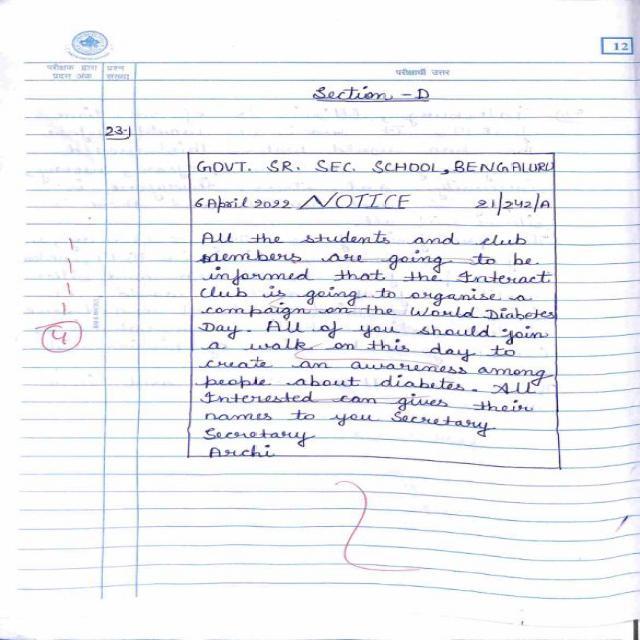 12
परीक्षक द्वारा प्रदत्त अंक
प्रश्न संख्या
परीक्षार्थी उत्तर
Section - D
23-)
GOVT. SR. SEC. SCHOOL, BENGALURU
6 April 2022 NOTICE 21/242/A
All the students and club
members are going to be
informed that the Interact
club is going to organise a
compaign on the World Diabetes
Day. All of you should join
a walk on this day to
create an awareness among
people about diabetes. All
Interested can gives their
names to you Secretary
Secretary
Archi
1
1
1
1
4